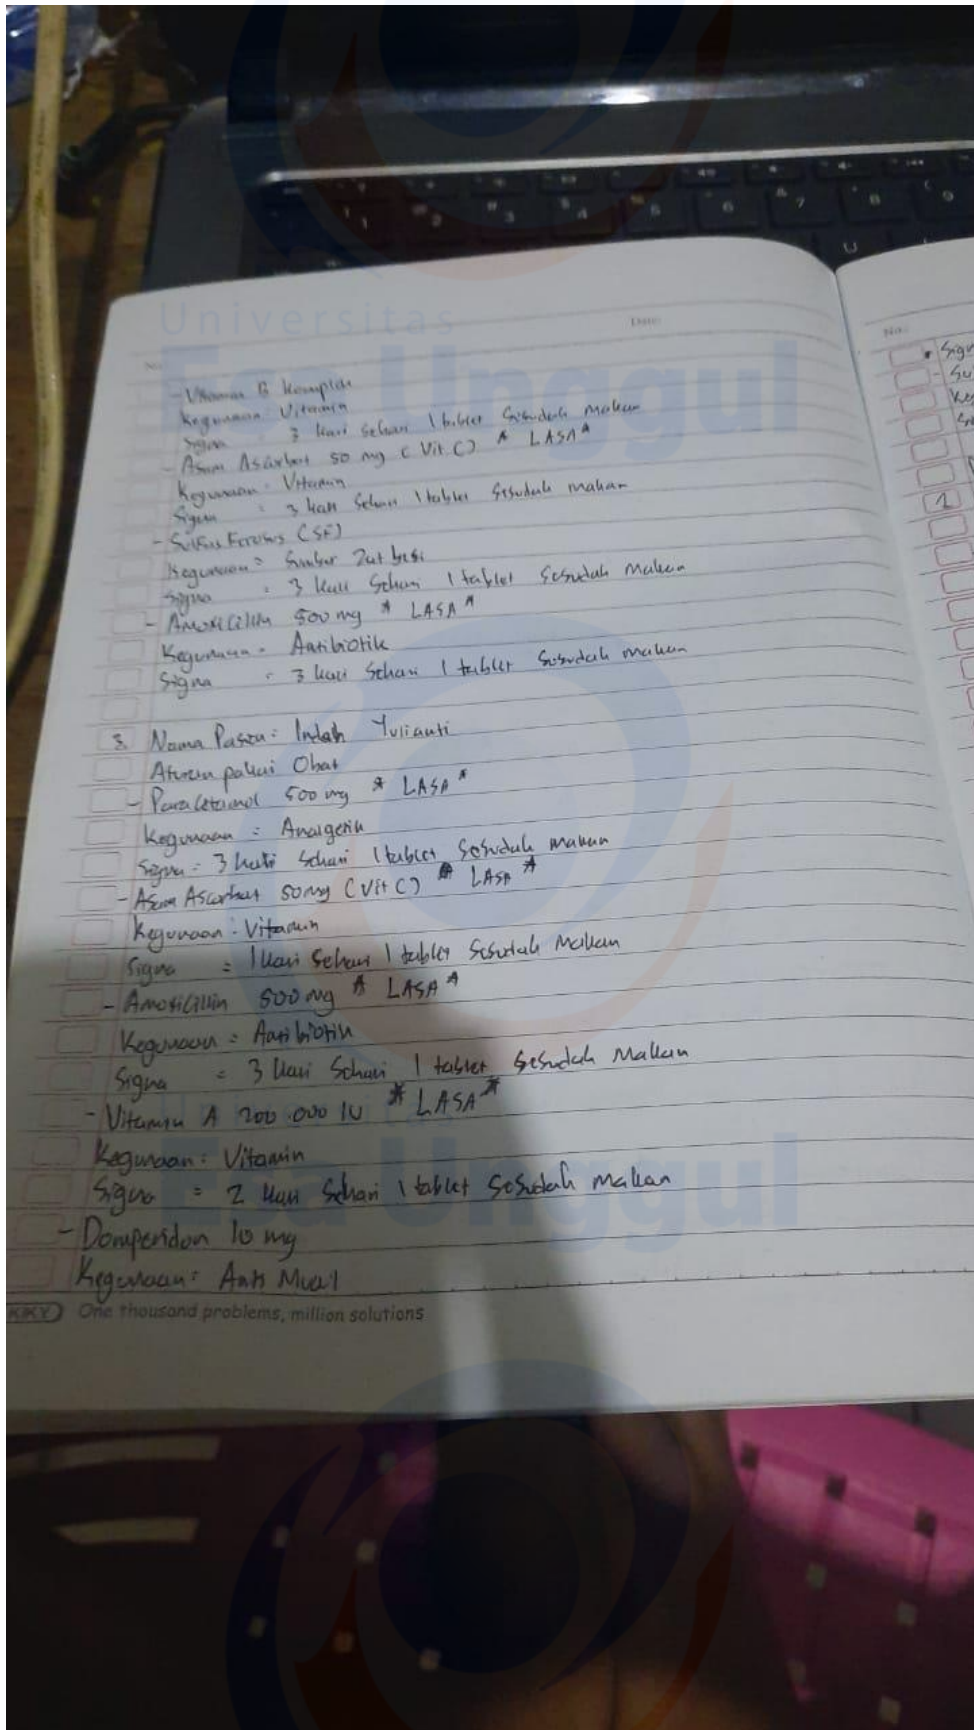 Universitas
Esa Unggul
Date:
No.
- Vitamin B Komplek
Kegunaan : Vitamin
Signa 3 kali sehari 1 tablet sesudah makan
- Asam Askorbat 50 mg (Vit C) * LASA *
Kegunaan : Vitamin
Signa : 3 kali sehari 1 tablet sesudah makan
- Sulfas Ferosus (SF)
Kegunaan = Sumber zat besi
Signa : 3 kali sehari 1 tablet sesudah makan
- Amoxicillin 500 mg * LASA *
Kegunaan = Antibiotik
Signa : 3 kali sehari 1 tablet sesudah makan
3. Nama Pasien : Indah Yulianti
Aturan pakai Obat
- Paracetamol 500 mg * LASA *
Kegunaan = Analgetik
Signa = 3 kali sehari 1 tablet sesudah makan
- Asam Ascorbat 50 mg (Vit C) * LASA *
Kegunaan : Vitamin
Signa = 1 kali sehari 1 tablet sesudah makan
- Amoxicillin 500 mg * LASA *
Kegunaan = Antibiotik
Signa = 3 kali sehari 1 tablet sesudah makan
- Vitamin A 200.000 IU * LASA *
Kegunaan : Vitamin
Signa = 2 kali sehari 1 tablet sesudah makan
- Domperidon 10 mg
Kegunaan : Anti Mual
KIKY One thousand problems, million solutions
Esa Unggul
No.
1